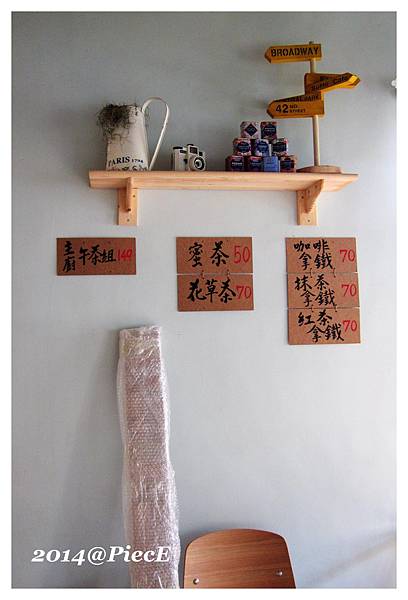 BROADWAY
CENTRAL PARK
42 ND. STREET
PARIS
主廚午茶組149
蜜茶50
花草茶70
咖啡拿鐵70
抹茶拿鐵70
紅茶拿鐵70
2014@PiecE